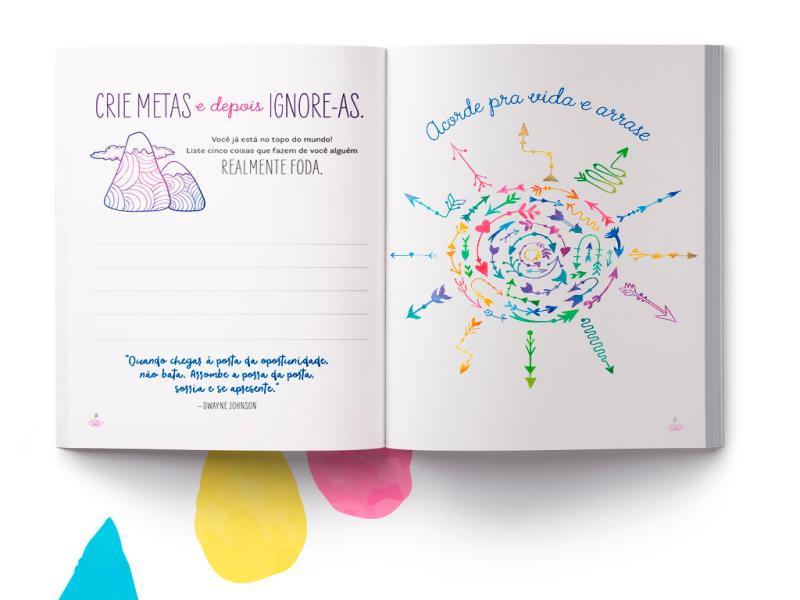 CRIE METAS e depois IGNORE-AS.
Você já está no topo do mundo!
Liste cinco coisas que fazem de você alguém
REALMENTE FODA.
"Quando chegar à porta da oportunidade,
não bata. Arrombe a porra da porta,
sorria e se apresente."
—DWAYNE JOHNSON
8
Acorde pra vida e arrase